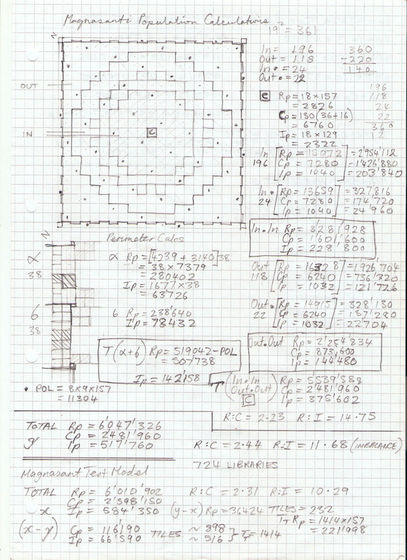 Magnasanti Population Calculations
19² = 361
In = 196
Out = 118
In • = 24
Out • = 22
360
-220
140
OUT
IN
C
C Rp = 18 x 157
= 2826
Cp = 130 (36+16)
= 6760
Ip = 18 x 129
= 2322
196
118
24
22
360
In 196
Cp = 7280 = 1'426'880
Ip = 1040 = 203'840
In • 24
Rp = 13659 = 327'816
Cp = 7280 = 174'720
Ip = 1040 = 24'960
In • In
Cp = 1'601'600
Ip = 228'800
Out 118
Rp = 16328 = 1'926'704
Cp = 6240 = 736'320
Ip = 1032 = 121'776
Out • 22
Rp = 14915 = 328'130
Cp = 6240 = 137'280
Ip = 1032 = 22'704
Out • Out
Rp = 2'254'834
Cp = 873'600
Ip = 144'480
Perimeter Calcs
α Rp = [4239 + 3140] 38
= 38 x 7379
= 280402
Ip = 1677 x 38
= 63726
α
38
6
38
6 Rp = 238640
Ip = 78432
T(α+6) Rp = 519042 - POL
= 507'738
Ip = 142'158
• POL = 8x9x157
= 11304
Cp = 2'481'960
Ip = 375'602
R:C = 2.23 R:I = 14.75
TOTAL Rp = 6'047'326
y Cp = 2'481'960
Ip = 517'760
R:C = 2.44 R:I = 11.68 (INBALANCE)
724 LIBRARIES
Magnasanti Test Model
TOTAL Rp = 6'010'902
x Cp = 2'598'150
Ip = 584'350
R:C = 2.31 R:I = 10.29
(y-x) Rp = 36424 TILES = 232
(x-y) Cp = 116'190 TILES ~ 898
Ip = 66'590 ~ 516
I = 1414
T Rp = 1414 x 157
= 221'998